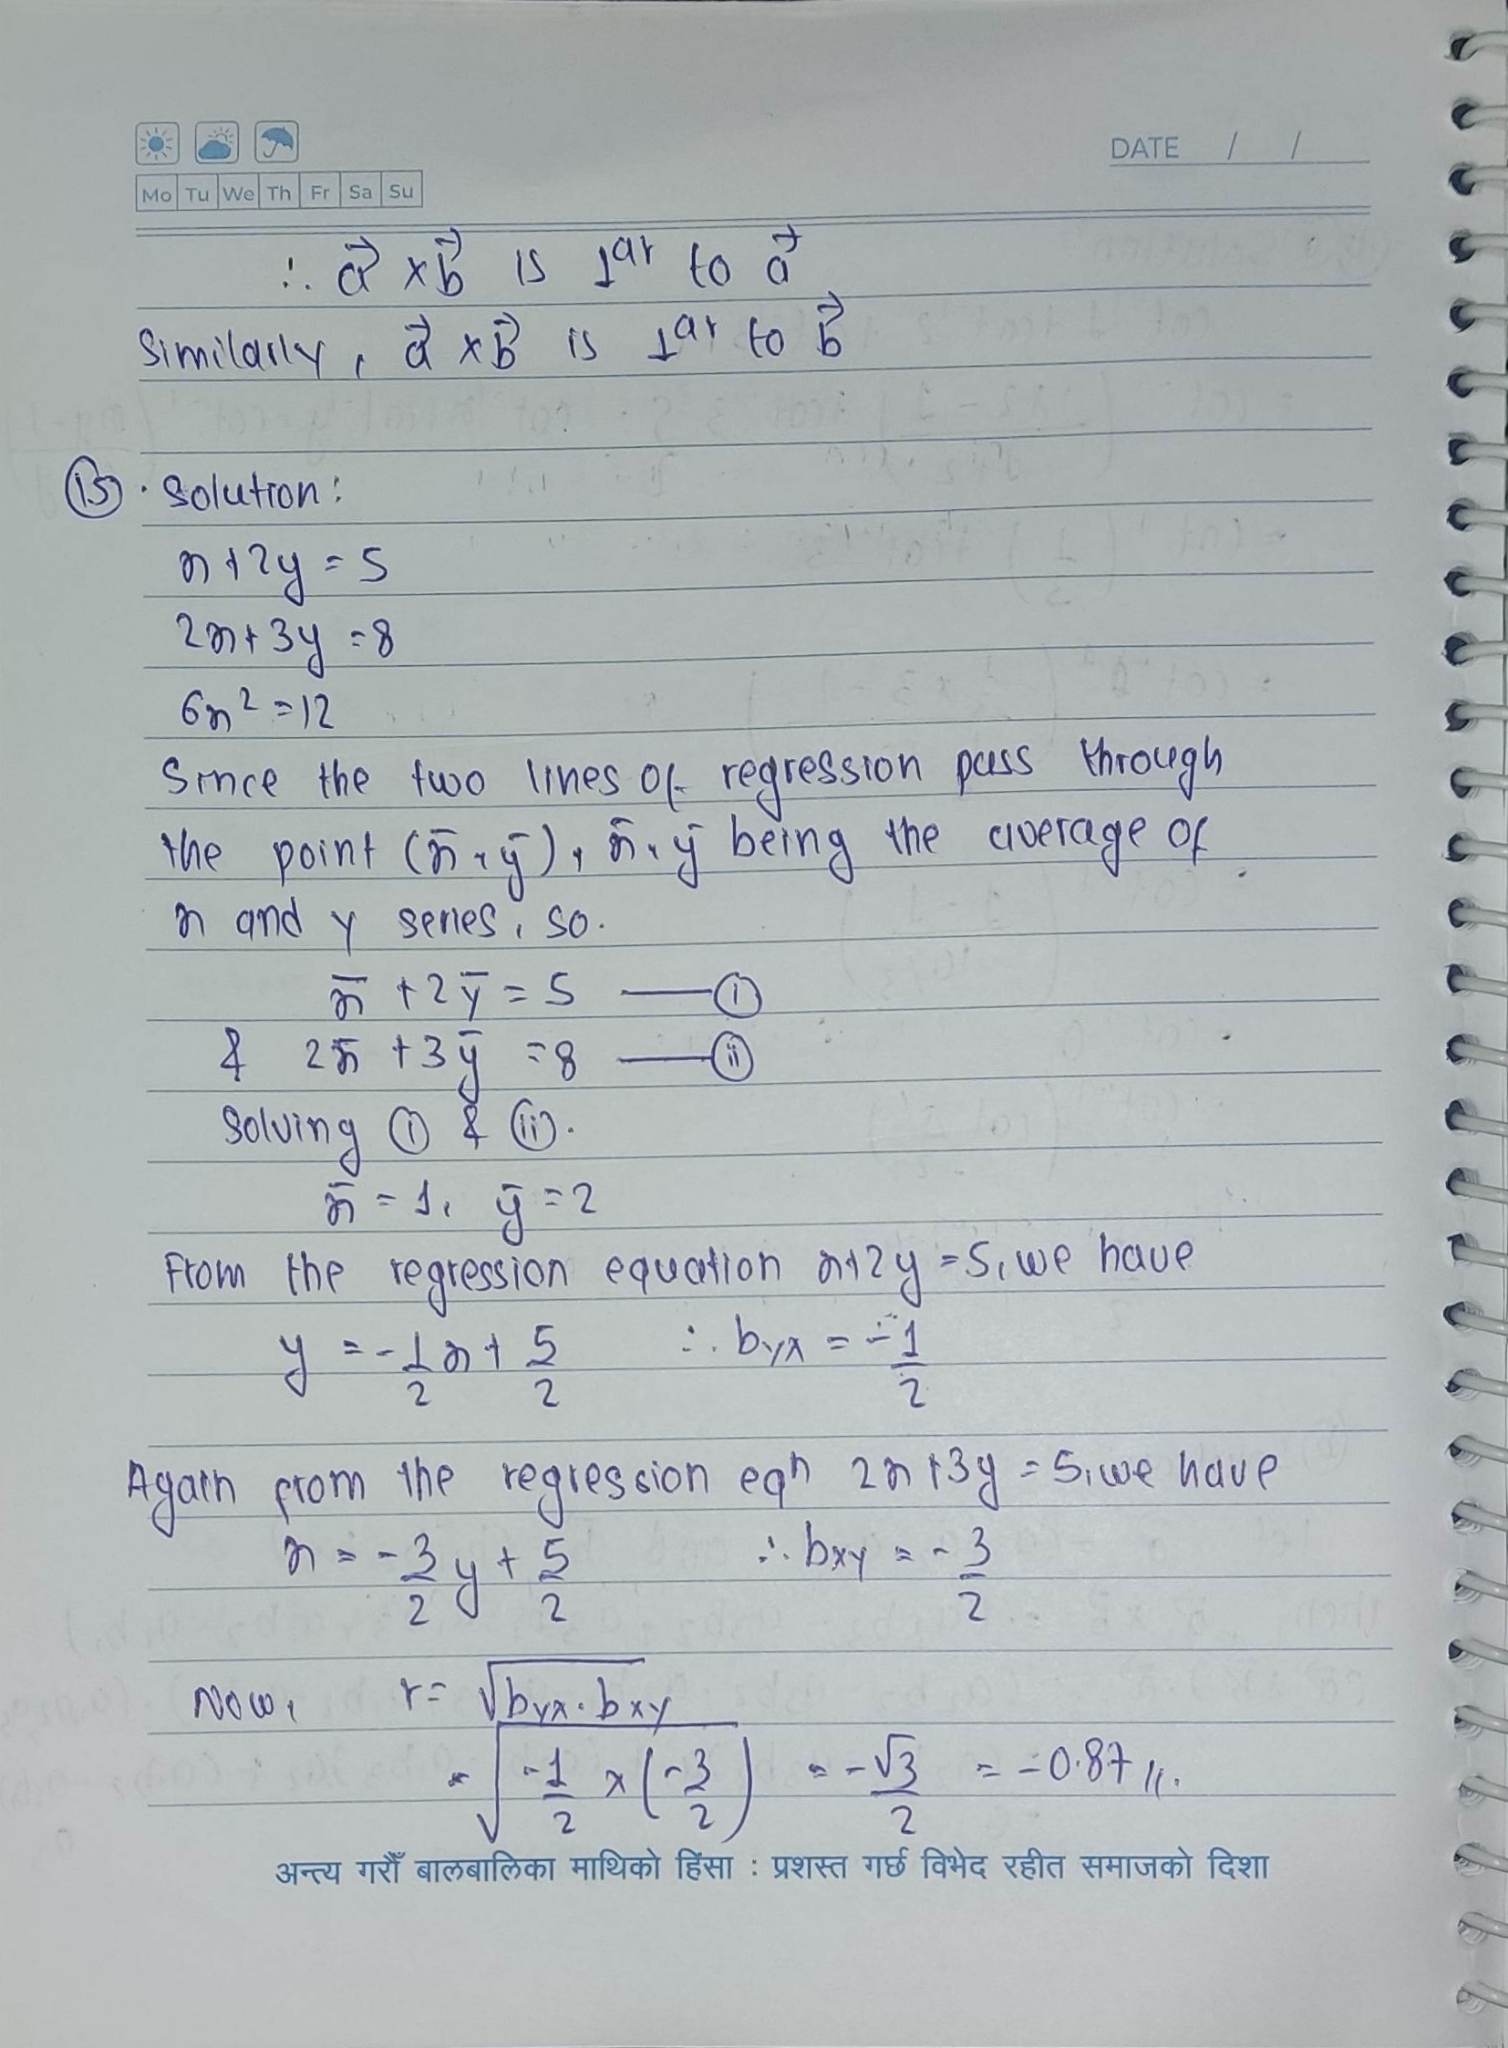 DATE / /
Mo Tu We Th Fr Sa Su
∴ a⃗ × b⃗ is ⊥ar to a⃗
Similarly, a⃗ × b⃗ is ⊥ar to b⃗
(15). Solution:
x + 2y = 5
2x + 3y = 8
6x² = 12
Since the two lines of regression pass through
the point (x̄, ȳ), x̄, ȳ being the average of
x and y series, so.
x̄ + 2ȳ = 5 —— (i)
& 2x̄ + 3ȳ = 8 —— (ii)
Solving (i) & (ii).
x̄ = 1, ȳ = 2
From the regression equation x+2y = 5, we have
y = -1/2 x + 5/2 ∴ byx = -1/2
Again from the regression eqn 2x+3y = 5, we have
x = -3/2 y + 5/2 ∴ bxy = -3/2
Now, r = √(byx . bxy)
= √(-1/2 × (-3/2)) = -√3/2 = -0.87 //.
अन्त्य गरौँ बालबालिका माथिको हिंसा : प्रशस्त गर्छ विभेद रहीत समाजको दिशा